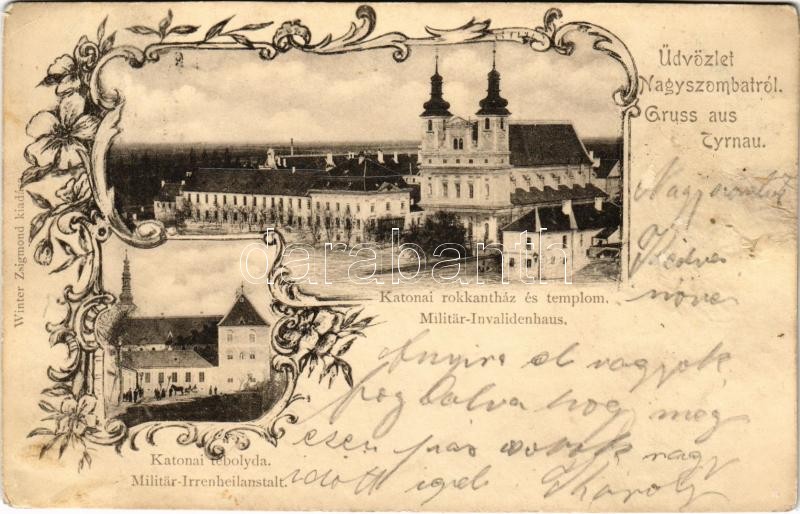 Üdvözlet
Nagyszombatról.
Gruss aus
Tyrnau.
Winter Zsigmond kiadá
darabanth
Katonai rokkantház és templom.
Militär-Invalidenhaus.
Katonai tébolyda.
Militär-Irrenheilanstalt.
Kedves
Annyira el vagyok
foglalva hog meg
ezen pár sorok nagy
Karoly